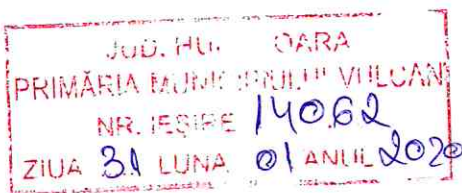 JUD. HU OARA
PRIMĂRIA MUNICIPIULUI VULCAN
NR. IEŞIRE 14062
ZIUA 31 LUNA 01 ANUL 2020